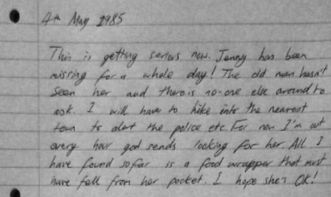 4th May 1985
This is getting serious now. Jenny has been
missing for a whole day! The old man hasn't
seen her and there is no-one else around to
ask. I will have to hike into the nearest
town to alert the police etc. For now I'm out
every hour god sends looking for her. All I
have found so far is a food wrapper that must
have fell from her pocket. I hope she's OK!